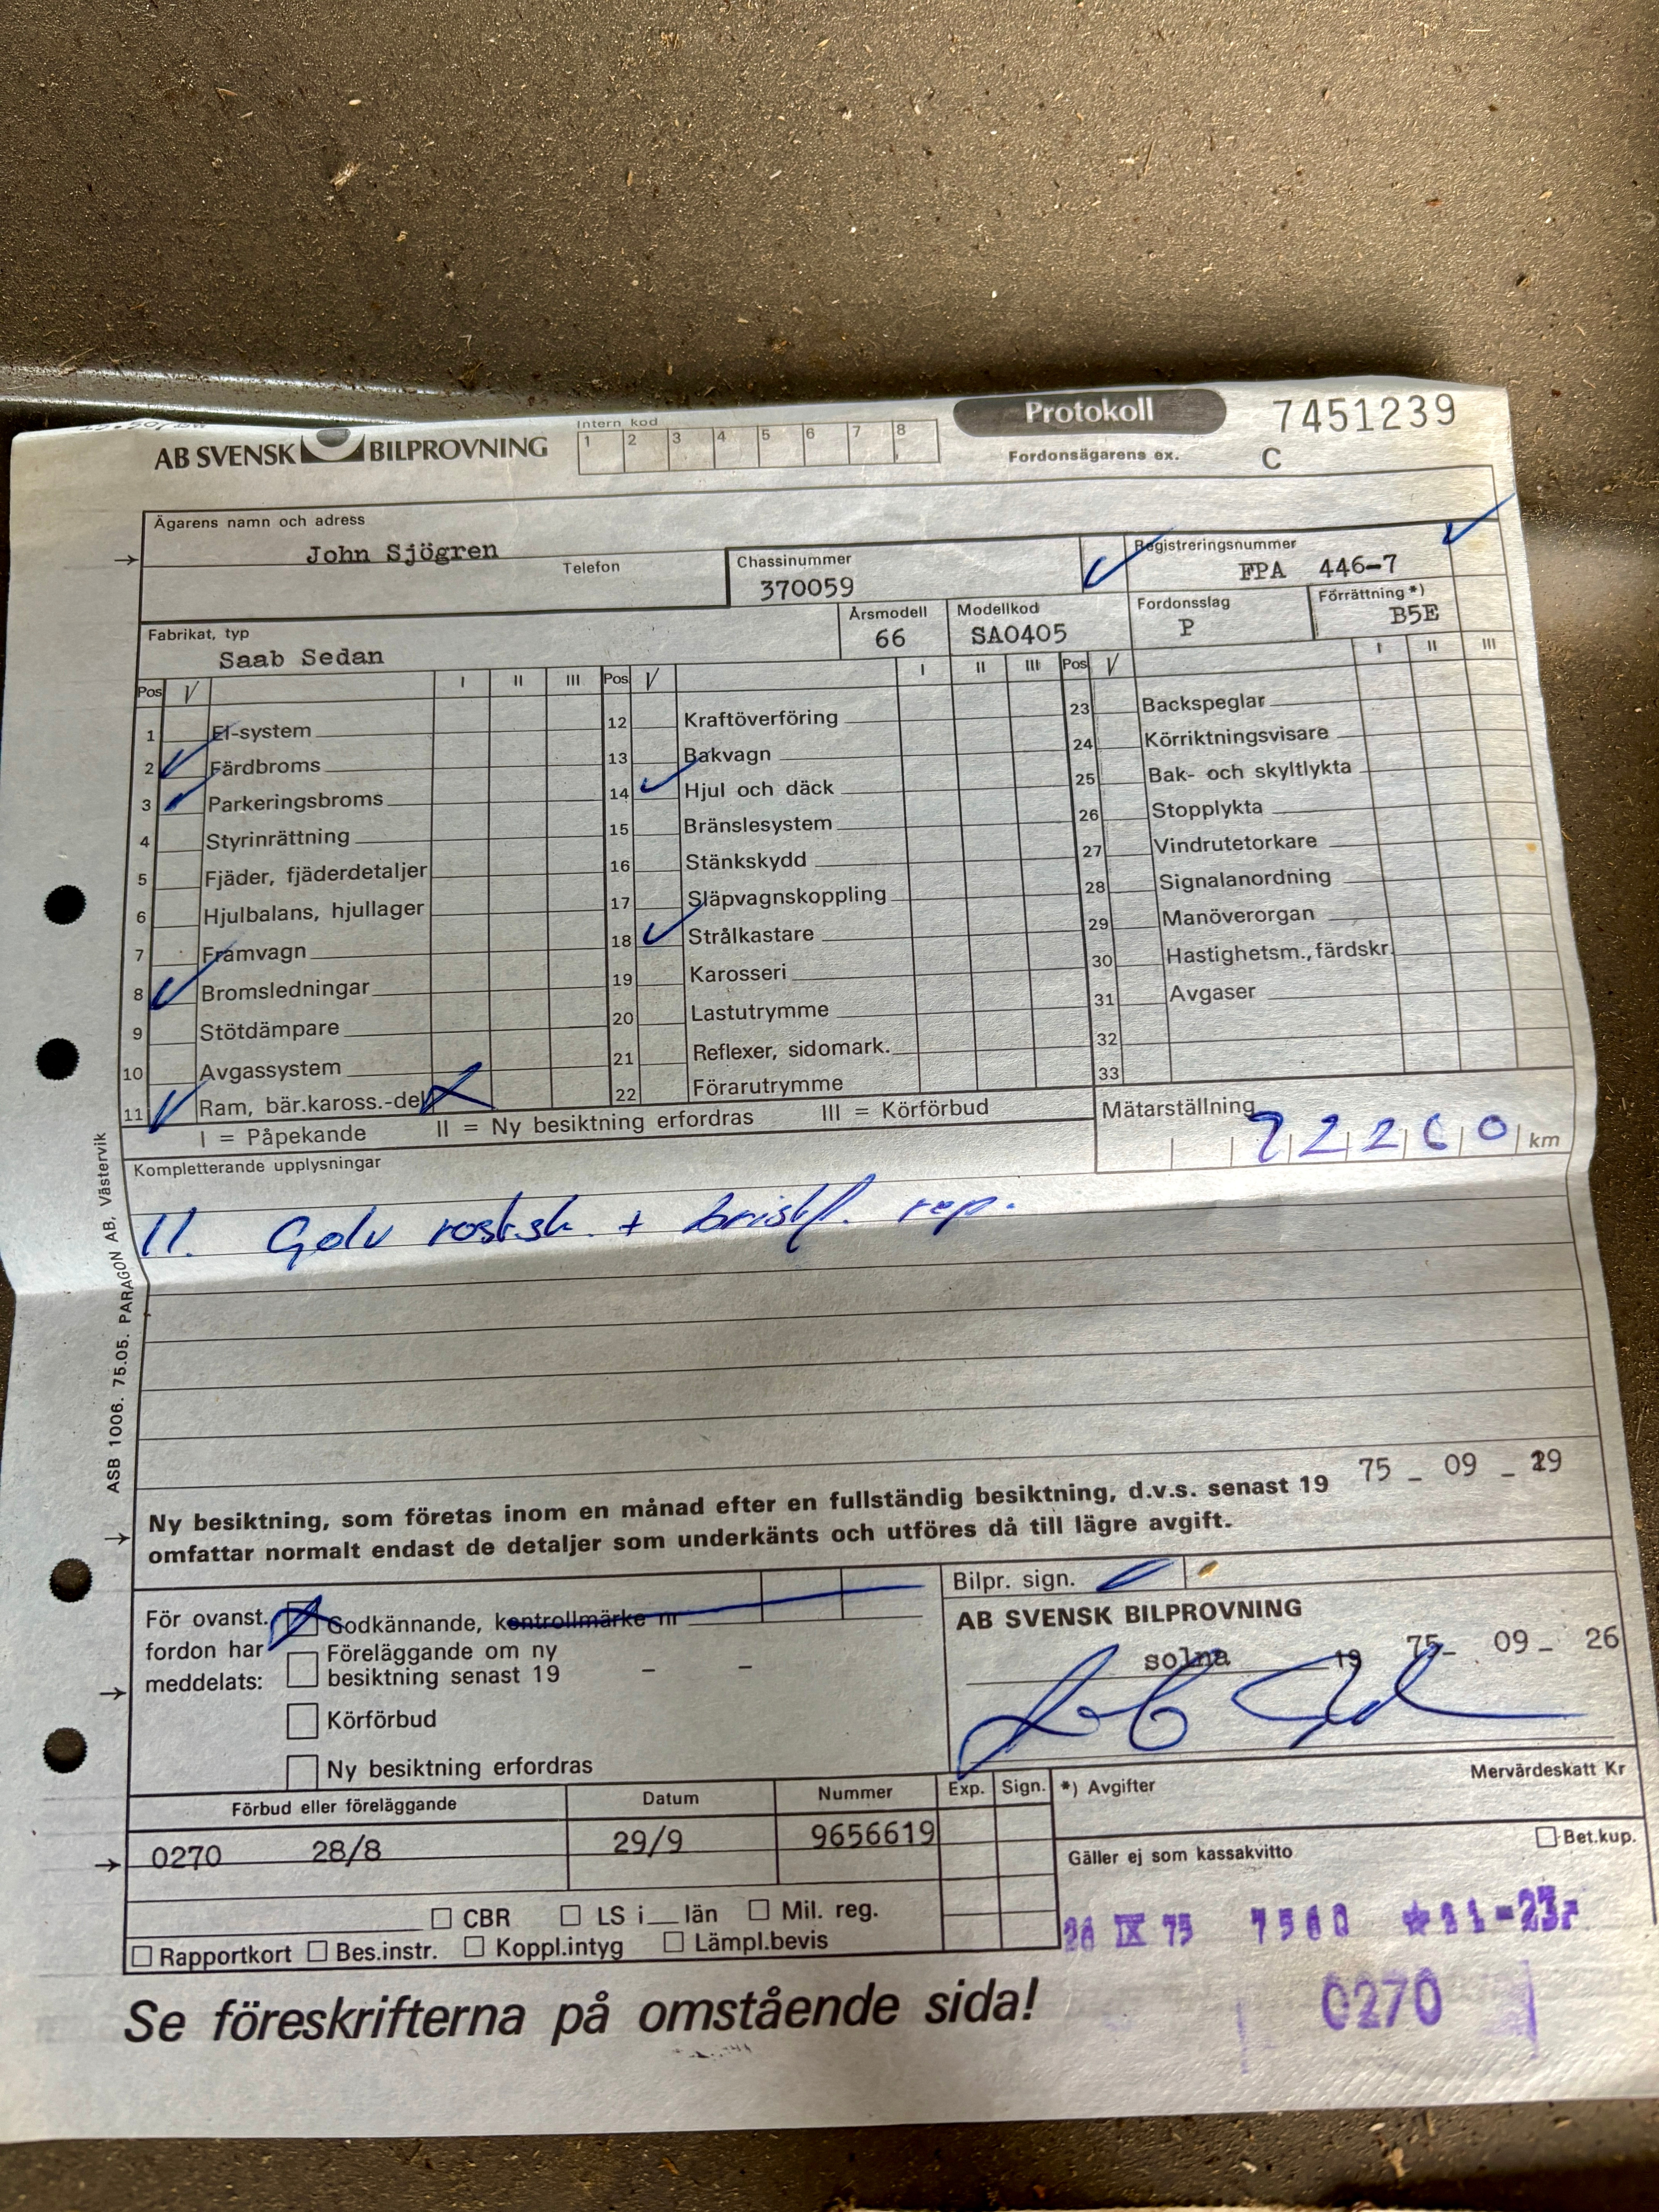 AB SVENSK BILPROVNING
Intern kod
1 2 3 4 5 6 7 8
Protokoll
7451239
Fordonsägarens ex.
C
Ägarens namn och adress
John Sjögren
Telefon
Chassinummer
370059
Registreringsnummer
FPA 446-7
Fabrikat, typ
Saab Sedan
Årsmodell
66
Modellkod
SA0405
Fordonsslag
P
Förrättning *)
B5E
Pos V I II III Pos V I II III Pos V I II III
1 El-system
2 Färdbroms
3 Parkeringsbroms
4 Styrinrättning
5 Fjäder, fjäderdetaljer
6 Hjulbalans, hjullager
7 Framvagn
8 Bromsledningar
9 Stötdämpare
10 Avgassystem
11 Ram, bär.kaross.-del
12 Kraftöverföring
13 Bakvagn
14 Hjul och däck
15 Bränslesystem
16 Stänkskydd
17 Släpvagnskoppling
18 Strålkastare
19 Karosseri
20 Lastutrymme
21 Reflexer, sidomark.
22 Förarutrymme
23 Backspeglar
24 Körriktningsvisare
25 Bak- och skyltlykta
26 Stopplykta
27 Vindrutetorkare
28 Signalanordning
29 Manöverorgan
30 Hastighetsm., färdskr.
31 Avgaser
32
33
I = Påpekande II = Ny besiktning erfordras III = Körförbud
Mätarställning
72260 km
Kompletterande upplysningar
11. Golv rostsk. + bristfl. rep.
ASB 1006. 75.05. PARAGON AB, Västervik
Ny besiktning, som företas inom en månad efter en fullständig besiktning, d.v.s. senast 19 75 - 09 -
omfattar normalt endast de detaljer som underkänts och utföres då till lägre avgift.
För ovanst.
fordon har
meddelats:
Godkännande, kontrollmärke nr
Föreläggande om ny
besiktning senast 19 - -
Körförbud
Ny besiktning erfordras
Bilpr. sign.
AB SVENSK BILPROVNING
solna 19 75- 09- 26
Förbud eller föreläggande Datum Nummer Exp. Sign.
0270 28/8 29/9 9656619
*) Avgifter
Mervärdeskatt Kr
Bet.kup.
Gäller ej som kassakvitto
CBR LS i län Mil. reg.
Rapportkort Bes.instr. Koppl.intyg Lämpl.bevis
26 IX 75
0270
Se föreskrifterna på omstående sida!